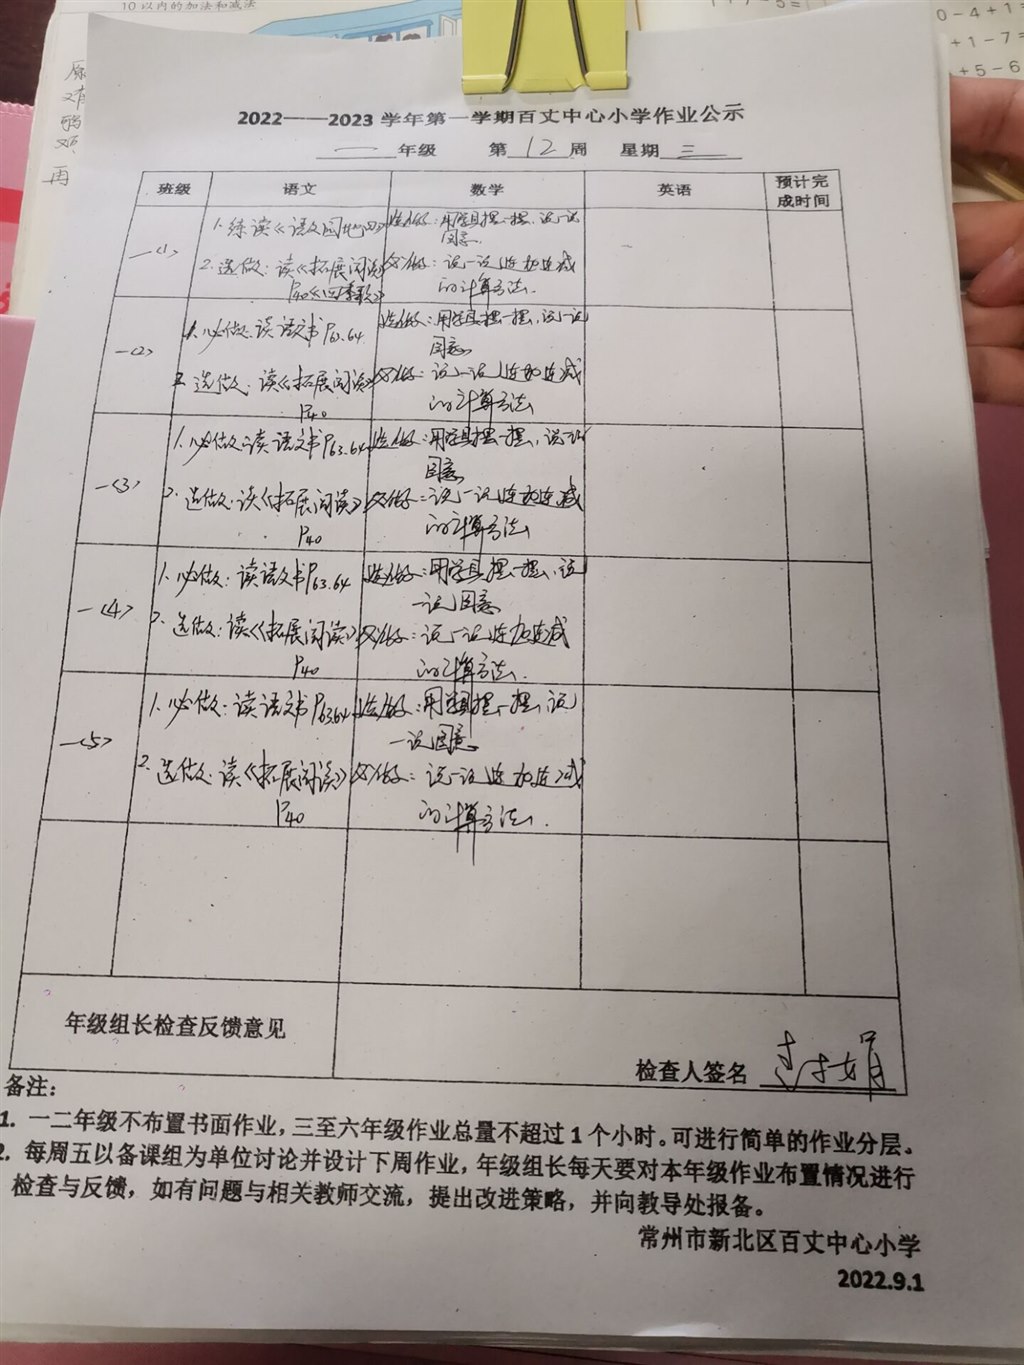 10 以内的加法和减法
0-4+1=
+1-7=
+5-6
再
2022——2023 学年第一学期百丈中心小学作业公示
一 年级 第 12 周 星期 三
班级 语文 数学 英语 预计完成时间
一(1)
1. 练读《语文园地四》
2. 选做: 读《拓展阅读》
P40《四季歌》
选做: 用学具摆一摆, 说一说
图意.
必做: 说一说连加连减
的计算方法.
一(2)
1. 必做: 读语文书P63.64
2. 选做: 读《拓展阅读》
P40
选做: 用学具摆一摆, 说一说
图意
必做: 说一说连加连减
的计算方法
一(3)
1. 必做: 读语文书P63.64
2. 选做: 读《拓展阅读》
P40
选做: 用学具摆一摆, 说一说
图意
必做: 说一说连加连减
的计算方法
一(4)
1. 必做: 读语文书P63.64
2. 选做: 读《拓展阅读》
P40
选做: 用学具摆一摆, 说
一说图意
必做: 说一说连加连减
的计算方法.
一(5)
1. 必做: 读语文书P63.64
2. 选做: 读《拓展阅读》
P40
选做: 用学具摆一摆, 说
一说图意
必做: 说一说连加连减
的计算方法.
年级组长检查反馈意见
检查人签名
备注:
1. 一二年级不布置书面作业, 三至六年级作业总量不超过 1 个小时。可进行简单的作业分层。
2. 每周五以备课组为单位讨论并设计下周作业, 年级组长每天要对本年级作业布置情况进行
检查与反馈, 如有问题与相关教师交流, 提出改进策略, 并向教导处报备。
常州市新北区百丈中心小学
2022.9.1